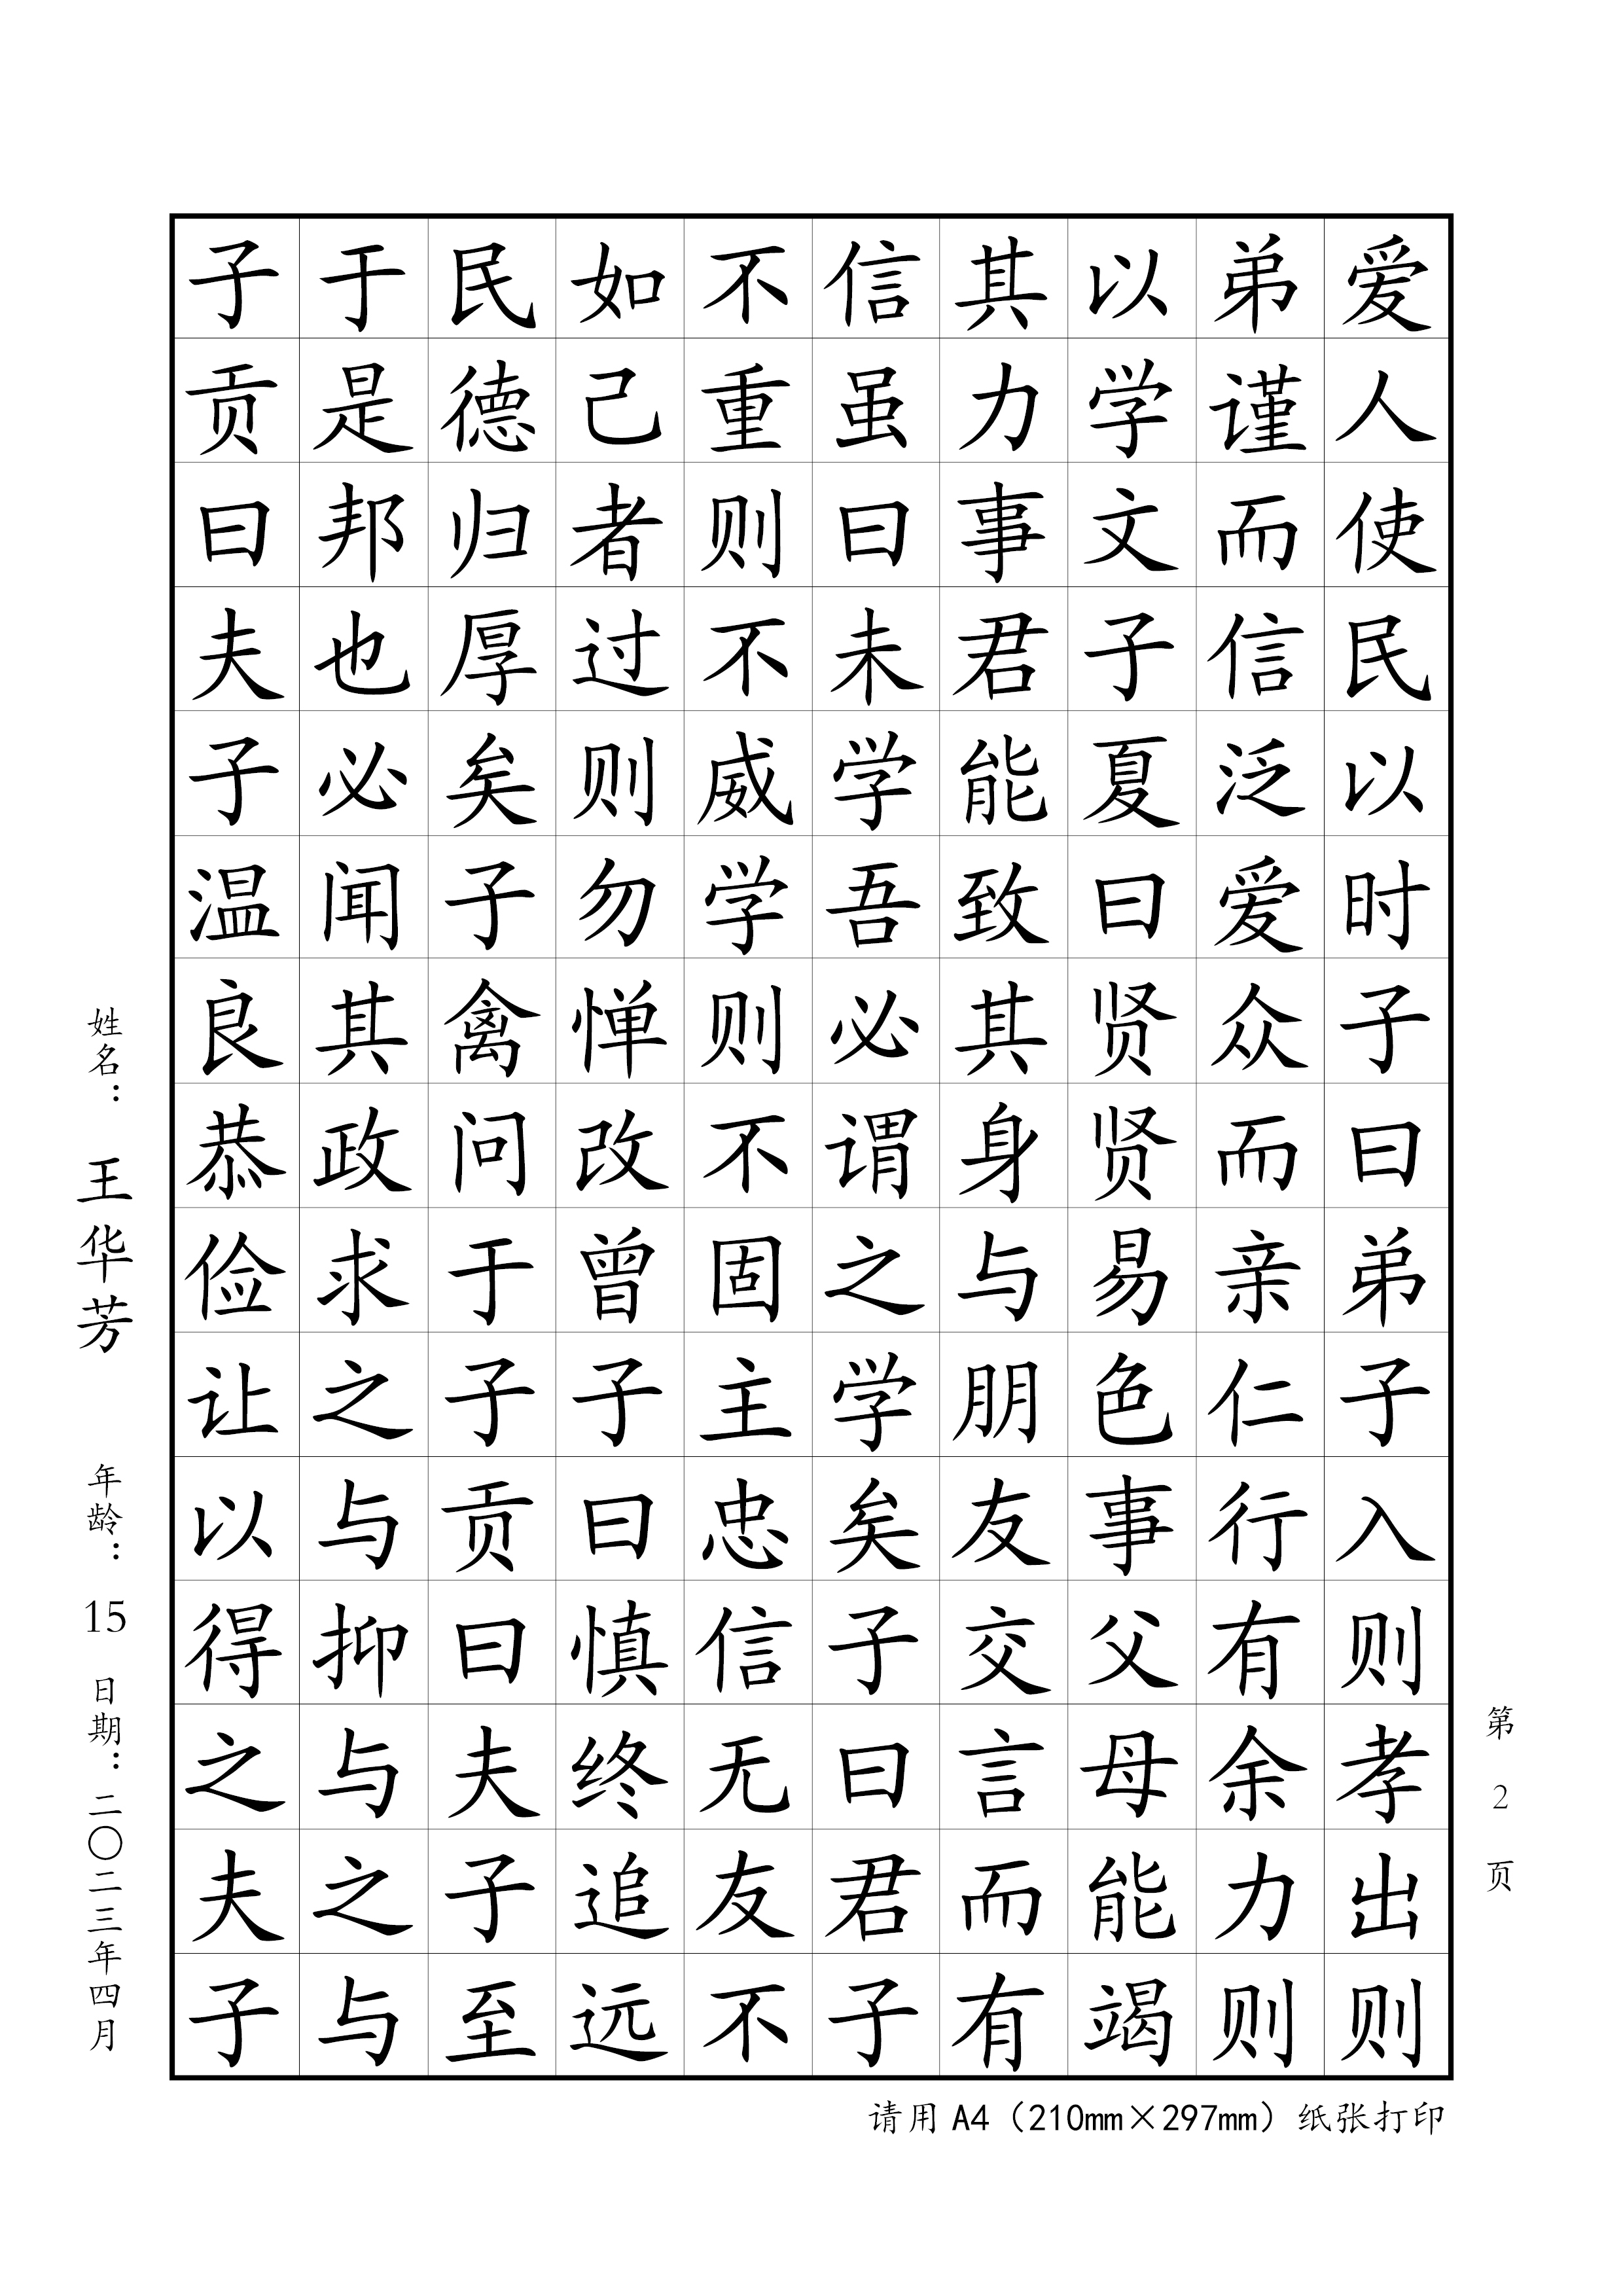 爱人使民以时子曰弟子入则孝出则
弟谨而信泛爱众而亲仁行有余力则
以学文子夏曰贤贤易色事父母能竭
其力事君能致其身与朋友交言而有
信虽曰未学吾必谓之学矣子曰君子
不重则不威学则不固主忠信无友不
如己者过则勿惮改曾子曰慎终追远
民德归厚矣子禽问于子贡曰夫子至
于是邦也必闻其政求之与抑与之与
子贡曰夫子温良恭俭让以得之夫子
第 2 页
姓名： 王华芳 年龄： 15 日期：二〇二三年四月
请用 A4（210mm×297mm）纸张打印